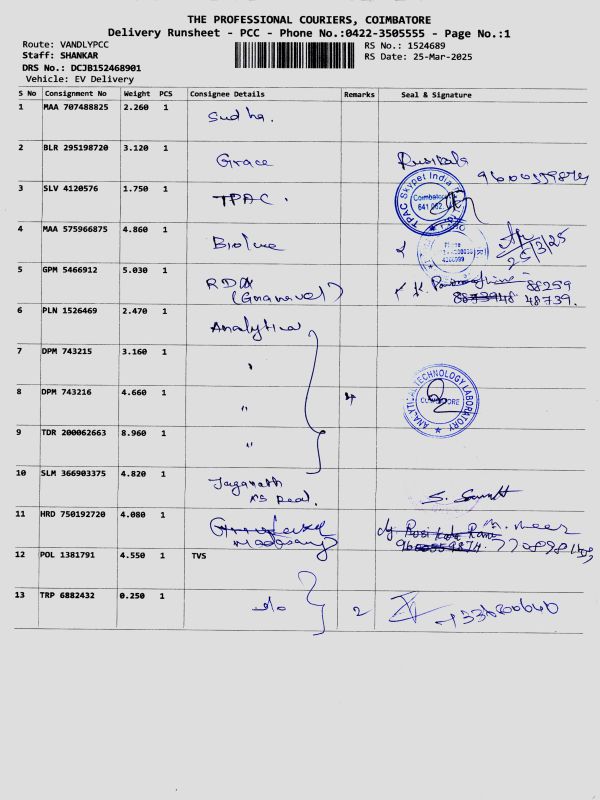 THE PROFESSIONAL COURIERS, COIMBATORE
Delivery Runsheet - PCC - Phone No.:0422-3505555 - Page No.:1
Route: VANDLYPCC
RS No.: 1524689
Staff: SHANKAR
RS Date: 25-Mar-2025
DRS No.: DCJB152468901
Vehicle: EV Delivery
S No Consignment No Weight PCS Consignee Details Remarks Seal & Signature
1 MAA 707488825 2.260 1 Sudha.
2 BLR 295198720 3.120 1 Grace
3 SLV 4120576 1.750 1 TPAC. TPAC Skypet India Coimbatore 641 062
4 MAA 575966875 4.860 1 25/3/25
5 GPM 5466912 5.030 1 RDA 88259
(Gnanavel) 48739.
6 PLN 1526469 2.470 1 Analytical
7 DPM 743215 3.160 1 "
8 DPM 743216 4.660 1 " 4 ANALYTICAL TECHNOLOGY LABORATORY COIMBATORE
9 TDR 200062663 8.960 1 "
10 SLM 366903375 4.820 1 Jaganath
11 HRD 750192720 4.080 1
12 POL 1381791 4.550 1 TVS
13 TRP 6882432 0.250 1 2